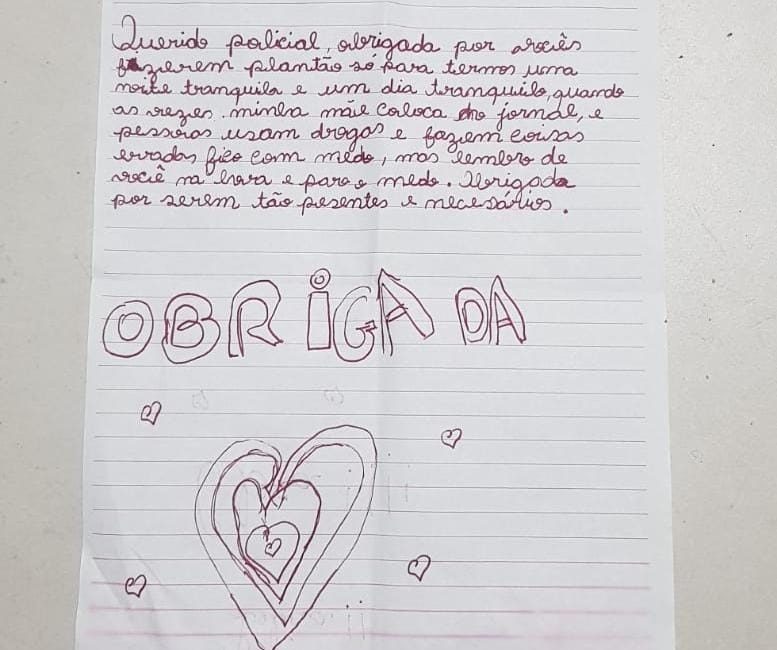 Querido policial, obrigada por vocês
fazerem plantão só para termos uma
noite tranquila e um dia tranquilo, quando
as vezes minha mãe coloca no jornal, e
pessoas usam drogas e faziem coisas
erradas fico com medo, mas lembro de
você na hora e paro o medo. Obrigada
por serem tão pesentes e necesários.
OBRIGADA